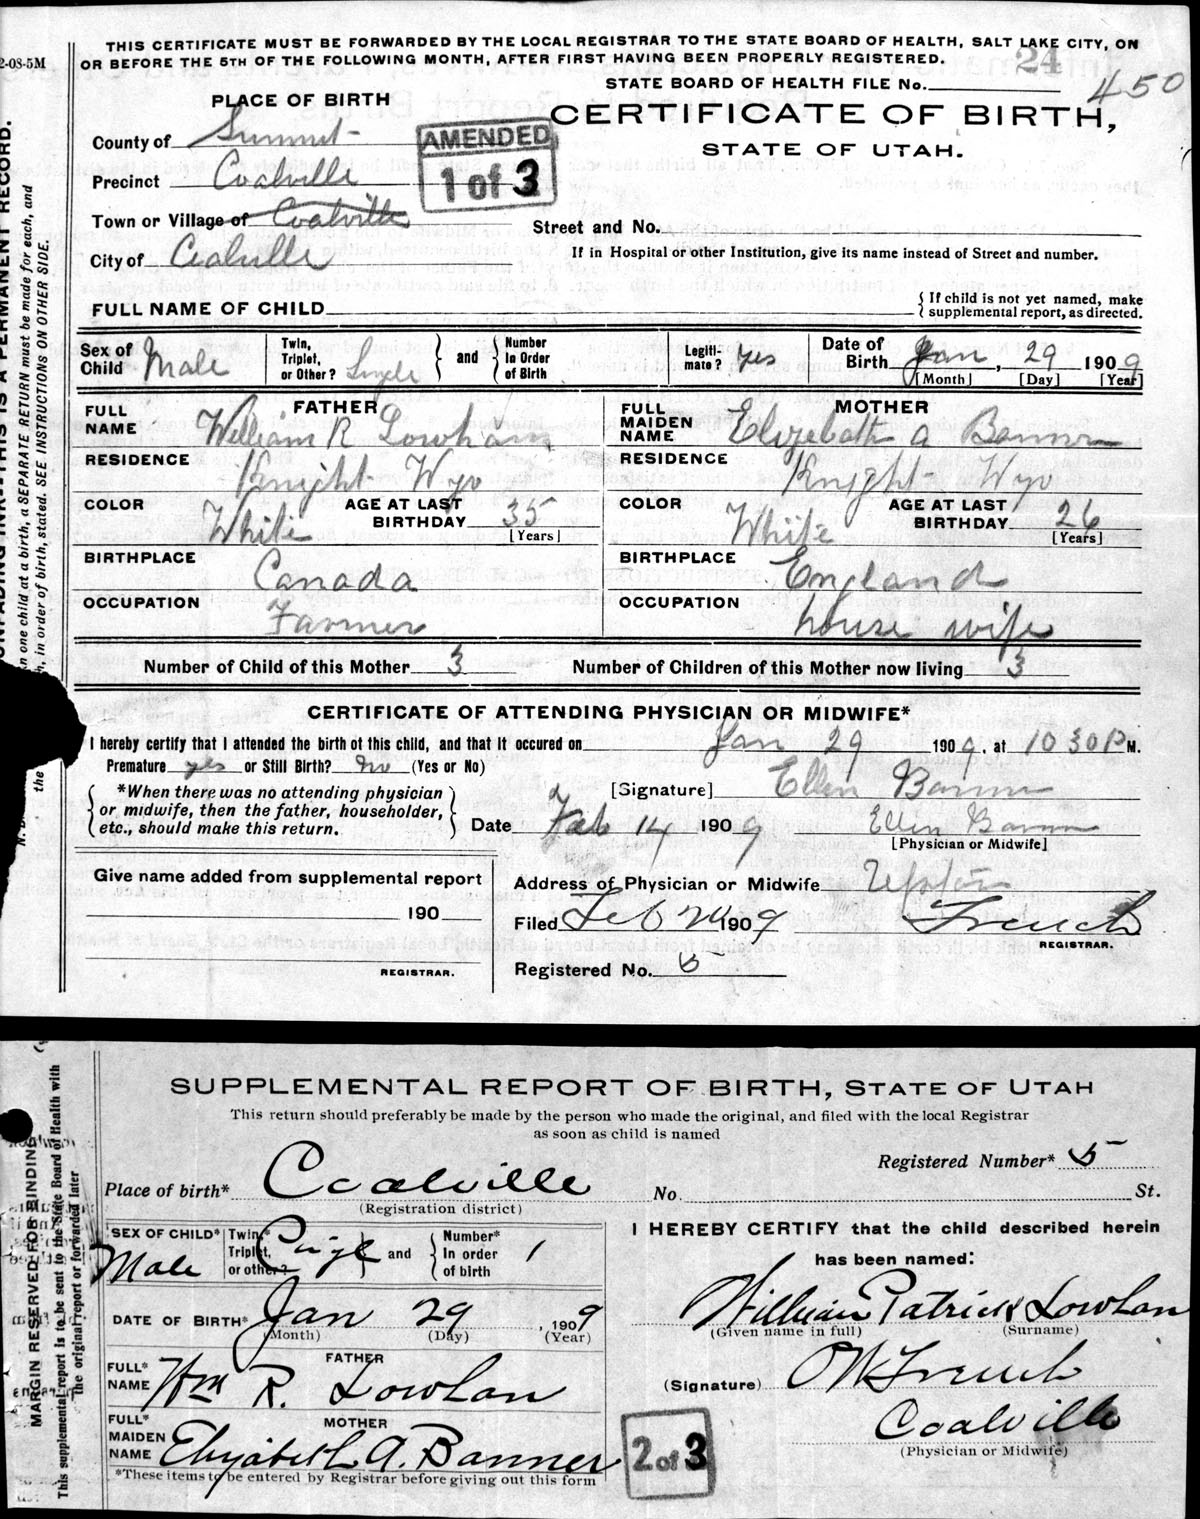 THIS CERTIFICATE MUST BE FORWARDED BY THE LOCAL REGISTRAR TO THE STATE BOARD OF HEALTH, SALT LAKE CITY, ON
OR BEFORE THE 5TH OF THE FOLLOWING MONTH, AFTER FIRST HAVING BEEN PROPERLY REGISTERED.
2-08-5M
24
STATE BOARD OF HEALTH FILE No. 450
PLACE OF BIRTH
CERTIFICATE OF BIRTH,
STATE OF UTAH.
County of Summit
AMENDED
1 of 3
Precinct Coalville
Town or Village of Coalville
Street and No.
City of Coalville
If in Hospital or other Institution, give its name instead of Street and number.
FULL NAME OF CHILD
{ If child is not yet named, make
supplemental report, as directed.
Sex of Child Male
Twin, Triplet, or Other? Single } and { Number In Order of Birth
Legiti-mate? yes
Date of Birth Jan, 29 1909
[Month] [Day] [Year]
FATHER
FULL NAME William R Lowham
RESIDENCE Knight Wyo
COLOR White
AGE AT LAST BIRTHDAY 35
[Years]
BIRTHPLACE Canada
OCCUPATION Farmer
MOTHER
FULL MAIDEN NAME Elizebath a Banner
RESIDENCE Knight Wyo
COLOR White
AGE AT LAST BIRTHDAY 26
[Years]
BIRTHPLACE England
OCCUPATION house wife
Number of Child of this Mother 3
Number of Children of this Mother now living 3
CERTIFICATE OF ATTENDING PHYSICIAN OR MIDWIFE*
I hereby certify that I attended the birth of this child, and that it occured on Jan 29 1909, at 10 30 P M.
Premature yes or Still Birth? no (Yes or No)
{ *When there was no attending physician
or midwife, then the father, householder,
etc., should make this return. }
[Signature] Ellen Banner
Date Feb 14 1909 Ellen Banner
[Physician or Midwife]
Give name added from supplemental report
190
REGISTRAR.
Address of Physician or Midwife Upton
Filed Feb 1909 French
REGISTRAR.
Registered No. 5
UNFADING INK---THIS IS A PERMANENT RECORD.
n one child at a birth, a SEPARATE RETURN must be made for each, and
h, in order of birth, stated. SEE INSTRUCTIONS ON OTHER SIDE.
SUPPLEMENTAL REPORT OF BIRTH, STATE OF UTAH
This return should preferably be made by the person who made the original, and filed with the local Registrar
as soon as child is named
Registered Number* 5
Place of birth* Coalville
(Registration district)
No. St.
SEX OF CHILD* Male
Twin,* Triplet, or other? } and { Number* In order of birth 1
DATE OF BIRTH* Jan 29, 1909
(Month) (Day) (Year)
FATHER
FULL* NAME Wm R. Lowhan
MOTHER
FULL* MAIDEN NAME Elizabeth A. Banner
*These items to be entered by Registrar before giving out this form
I HEREBY CERTIFY that the child described herein
has been named:
William Patrick Lowhan
(Given name in full) (Surname)
(Signature) O W French
Coalville
(Physician or Midwife)
2 of 3
MARGIN RESERVED FOR BINDING
This supplemental report is to be sent to the State Board of Health with
The original report or forwarded later